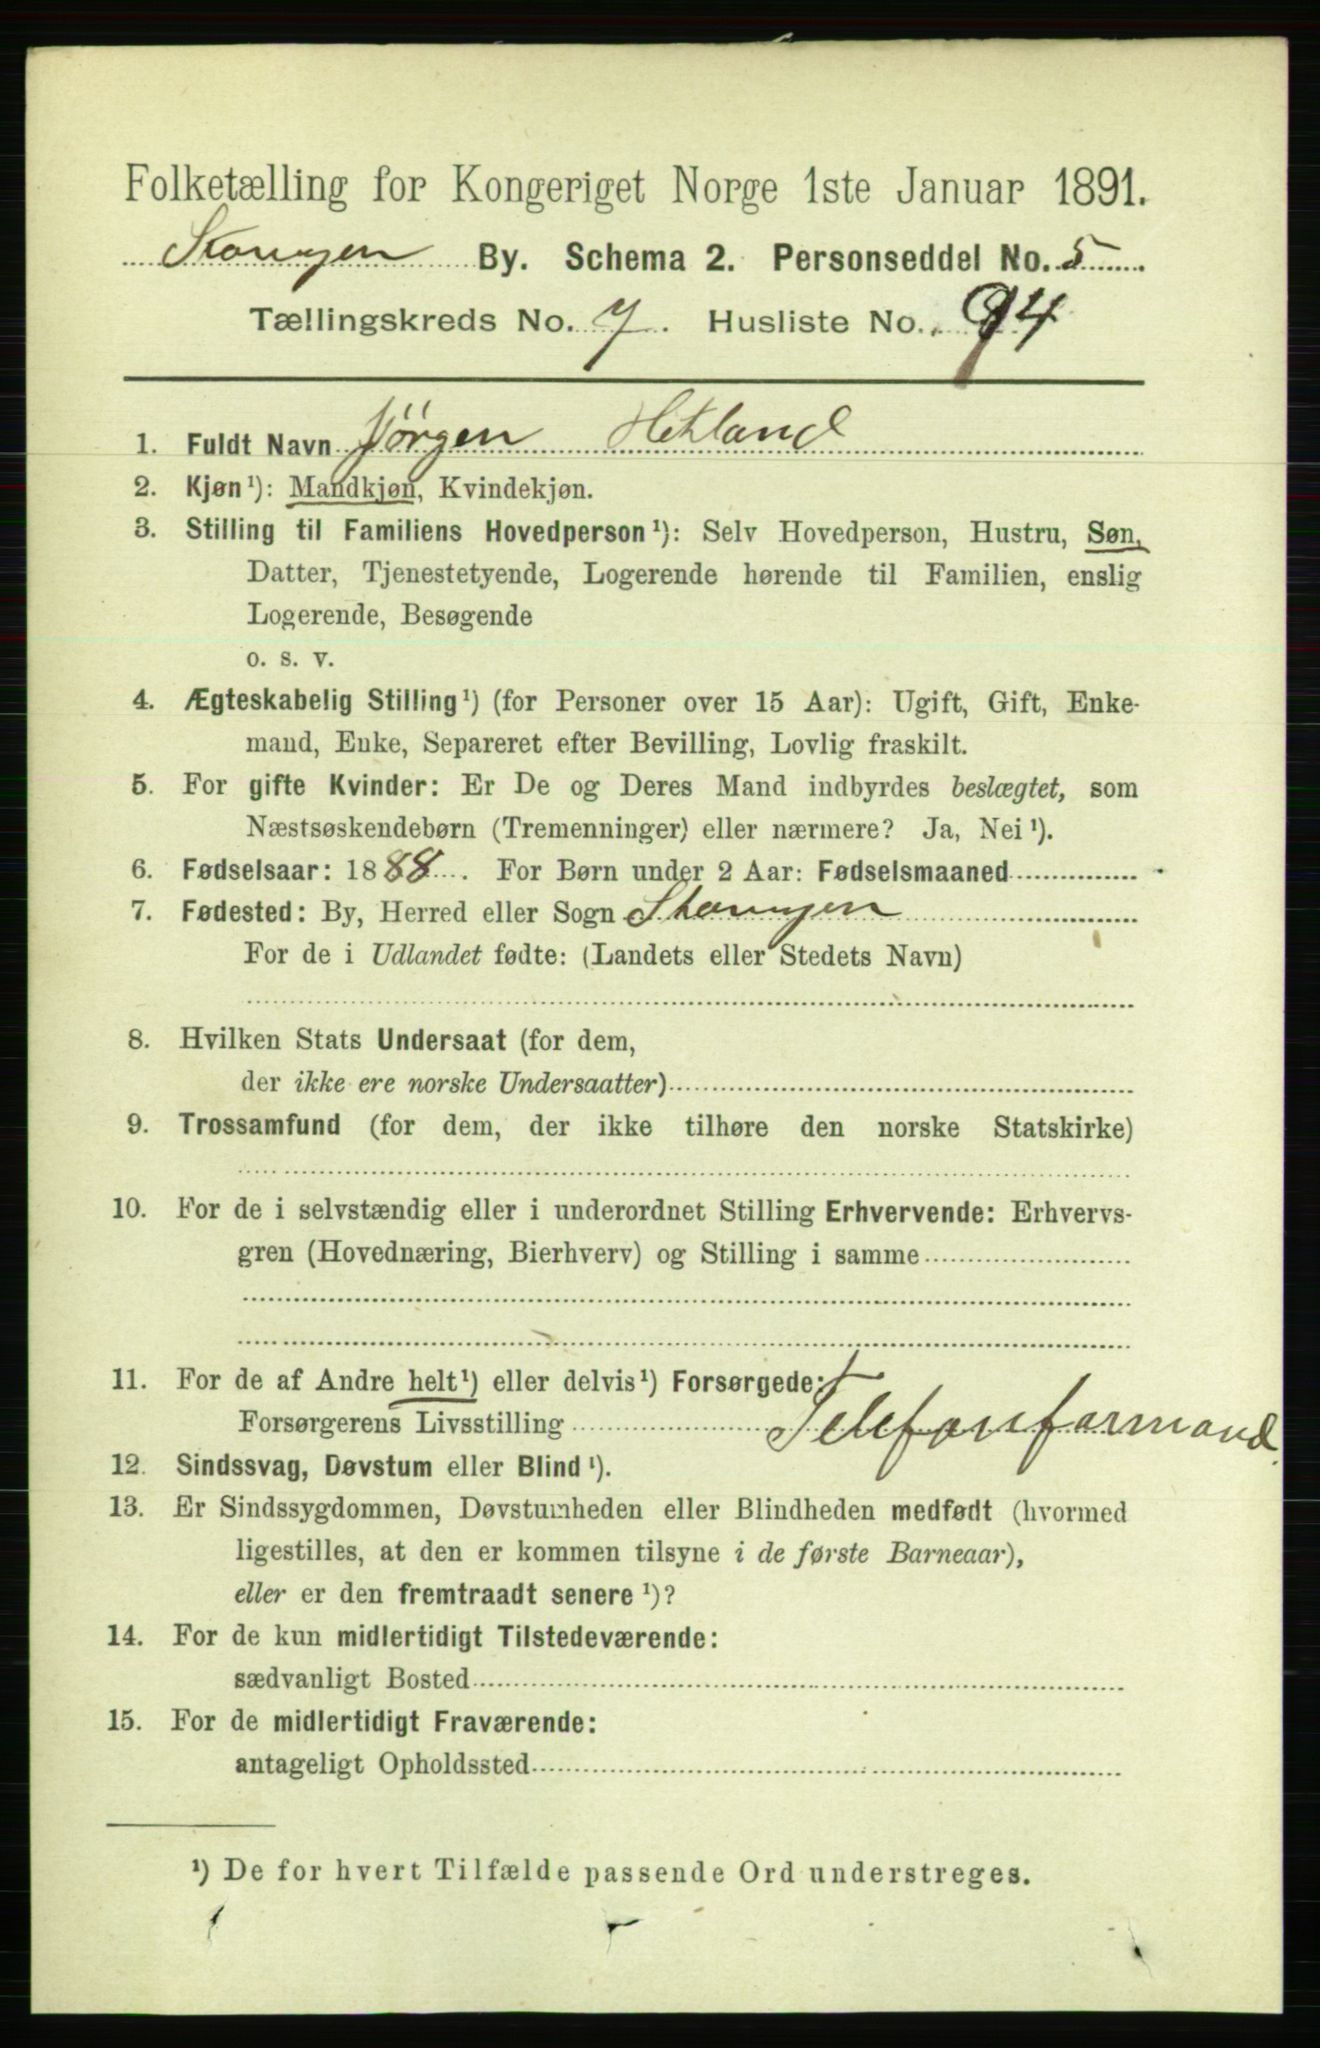 Folketælling for Kongeriget Norge 1ste Januar 1891.
By. Schema 2. Personseddel No. 5
Tællingskreds No. 7. Husliste No. 94
1. Fuldt Navn Jørgen Hetland
2. Kjøn¹): Mandkjøn, Kvindekjøn.
3. Stilling til Familiens Hovedperson¹): Selv Hovedperson, Hustru, Søn,
Datter, Tjenestetyende, Logerende hørende til Familien, enslig
Logerende, Besøgende
o. s. v.
4. Ægteskabelig Stilling¹) (for Personer over 15 Aar): Ugift, Gift, Enke-
mand, Enke, Separeret efter Bevilling, Lovlig fraskilt.
5. For gifte Kvinder: Er De og Deres Mand indbyrdes beslægtet, som
Næstsøskendebørn (Tremenninger) eller nærmere? Ja, Nei¹).
6. Fødselsaar: 1888. For Børn under 2 Aar: Fødselsmaaned
7. Fødested: By, Herred eller Sogn
For de i Udlandet fødte: (Landets eller Stedets Navn)
8. Hvilken Stats Undersaat (for dem,
der ikke ere norske Undersaatter)
9. Trossamfund (for dem, der ikke tilhøre den norske Statskirke)
10. For de i selvstændig eller i underordnet Stilling Erhvervende: Erhvervs-
gren (Hovednæring, Bierhverv) og Stilling i samme
11. For de af Andre helt¹) eller delvis¹) Forsørgede:
Forsørgerens Livsstilling Telefonformand
12. Sindssvag, Døvstum eller Blind¹).
13. Er Sindssygdommen, Døvstumheden eller Blindheden medfødt (hvormed
ligestilles, at den er kommen tilsyne i de første Barneaar),
eller er den fremtraadt senere¹)?
14. For de kun midlertidigt Tilstedeværende:
sædvanligt Bosted
15. For de midlertidigt Fraværende:
antageligt Opholdssted
¹) De for hvert Tilfælde passende Ord understreges.